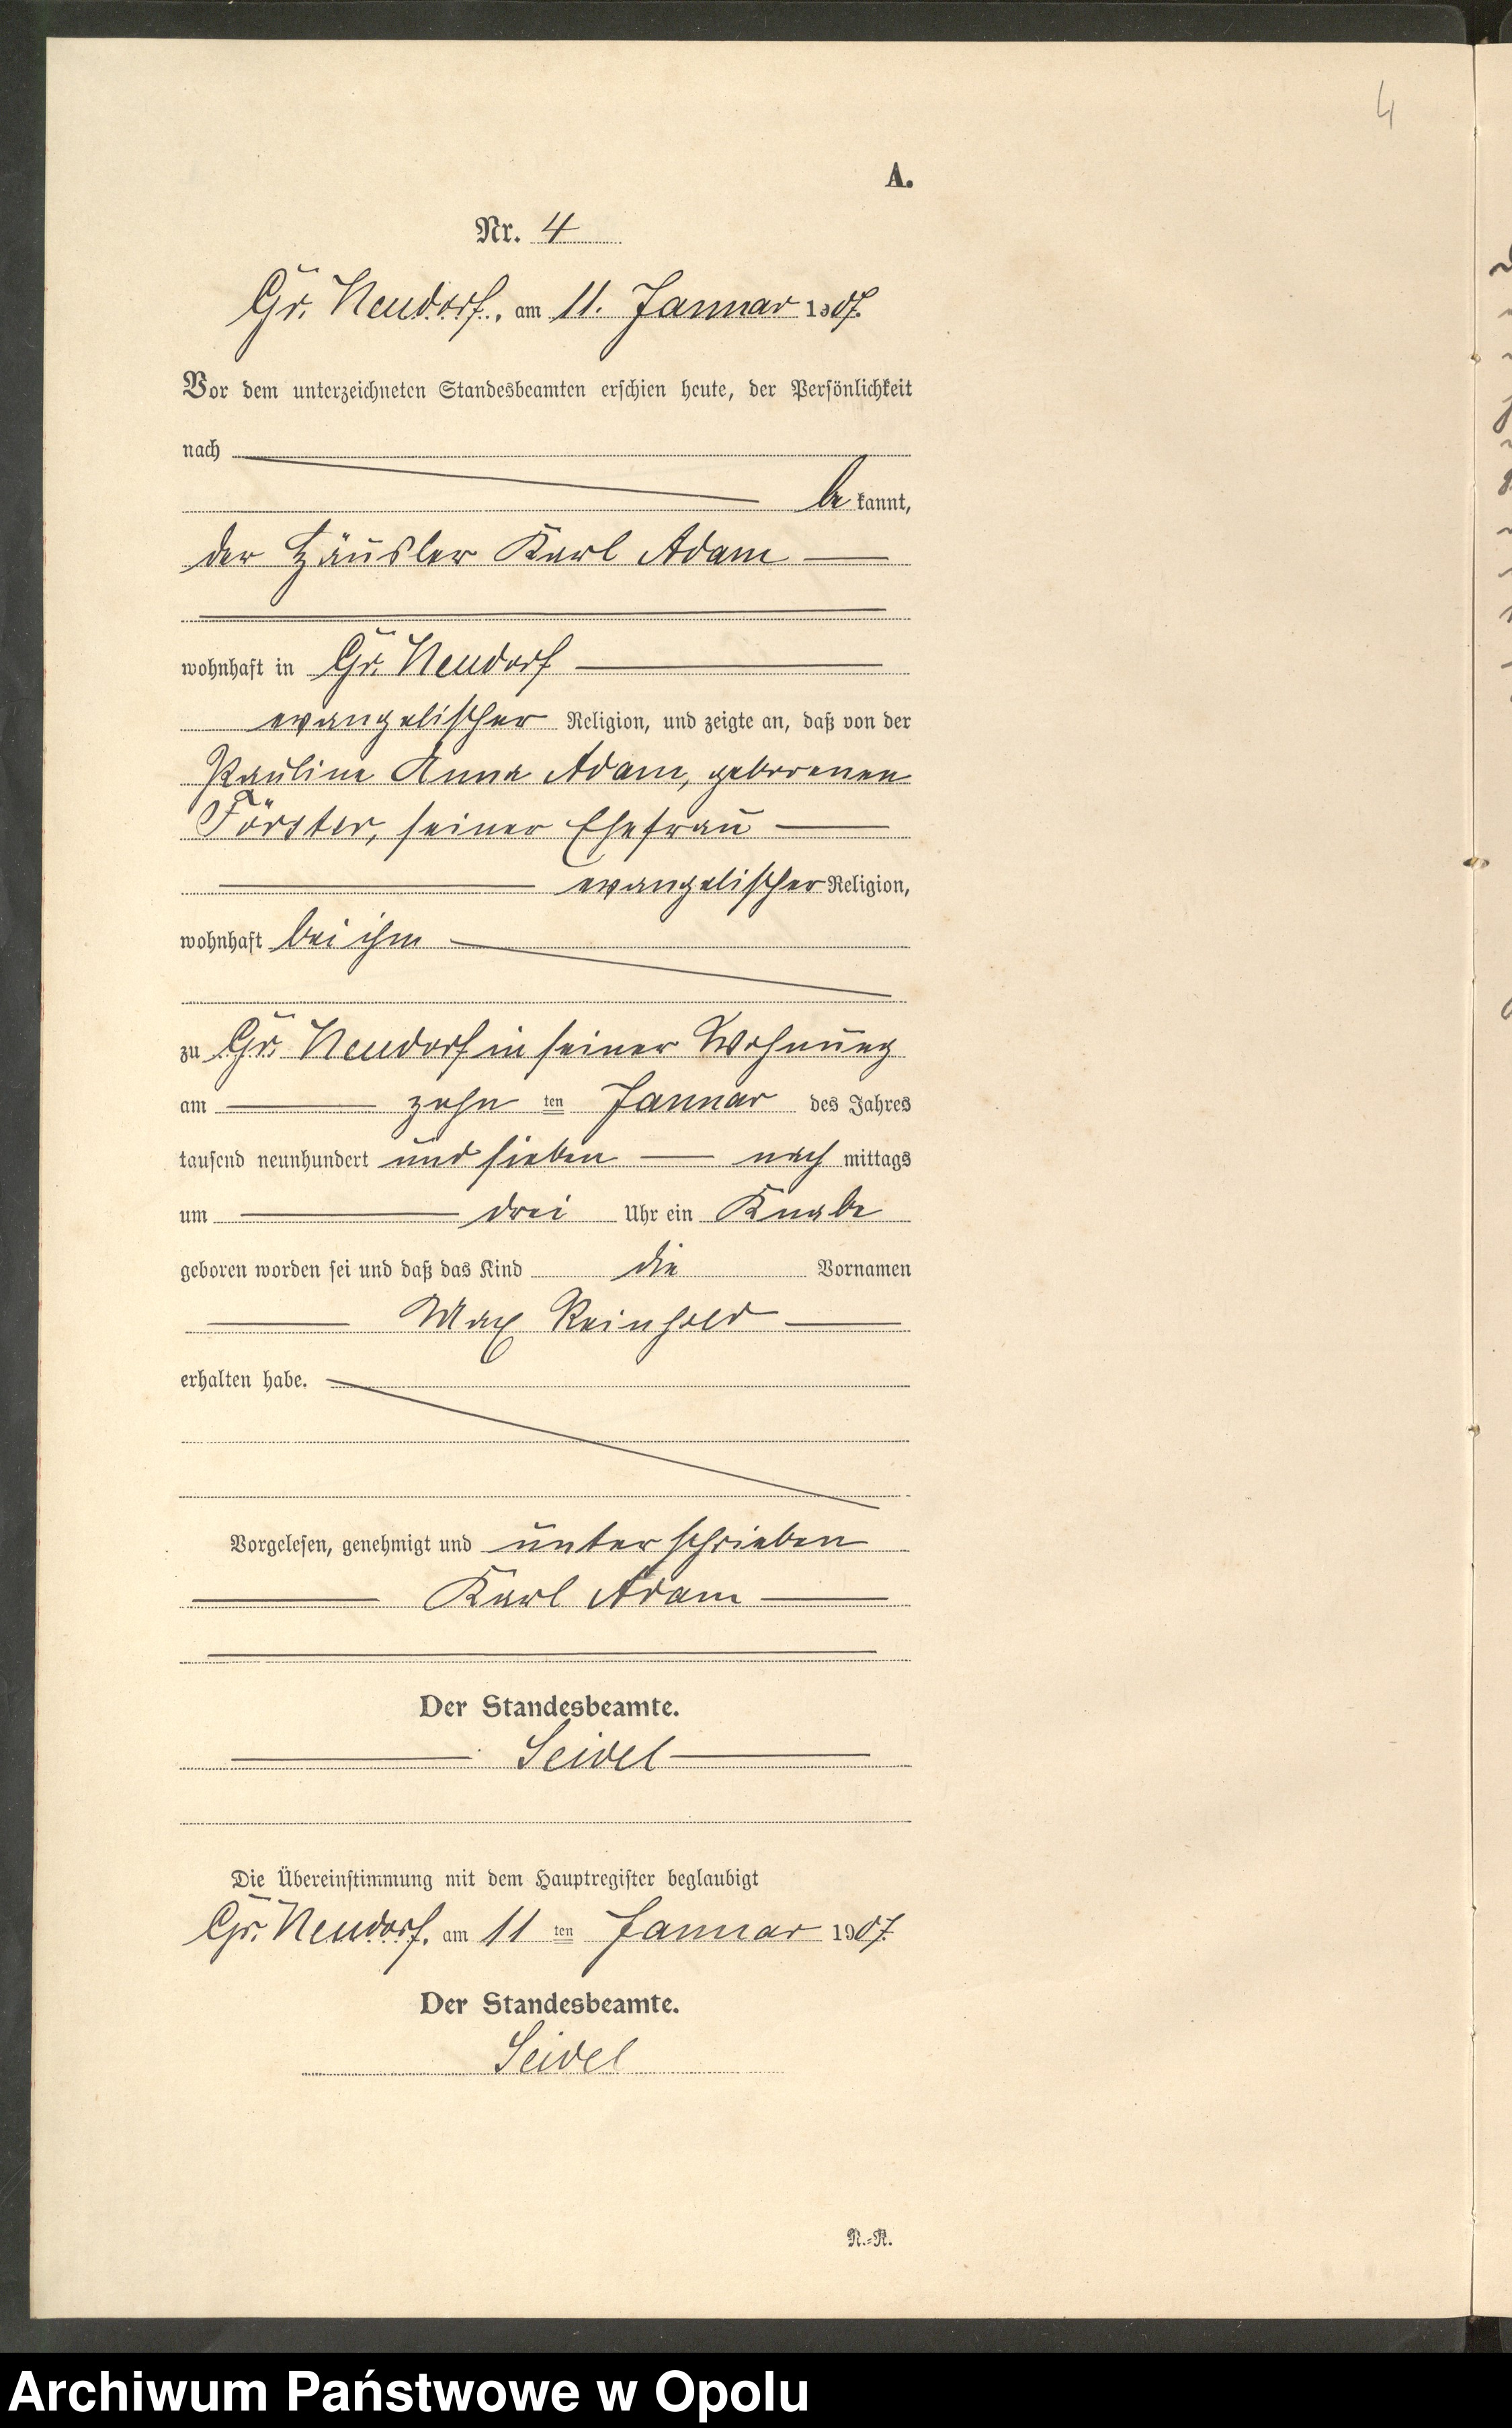 4
A.
Nr. 4
Gr. Neudorf, am 11. Januar 1907.
Vor dem unterzeichneten Standesbeamten erschien heute, der Persönlichkeit
nach
be kannt,
der Häusler Karl Adam
wohnhaft in Gr. Neudorf
evangelischer Religion, und zeigte an, daß von der
Pauline Anna Adam, geborenen
Förster, seiner Ehefrau
evangelischer Religion,
wohnhaft bei ihm
zu Gr. Neudorf in seiner Wohnung
am zehn ten Januar des Jahres
tausend neunhundert und sieben nach mittags
um drei Uhr ein Knabe
geboren worden sei und daß das Kind die Vornamen
Max Reinhold
erhalten habe.
Vorgelesen, genehmigt und unterschrieben
Karl Adam
Der Standesbeamte.
Seidel
Die Übereinstimmung mit dem Hauptregister beglaubigt
Gr. Neudorf, am 11 ten Januar 1907.
Der Standesbeamte.
Seidel
N.-R.
Archiwum Państwowe w Opolu